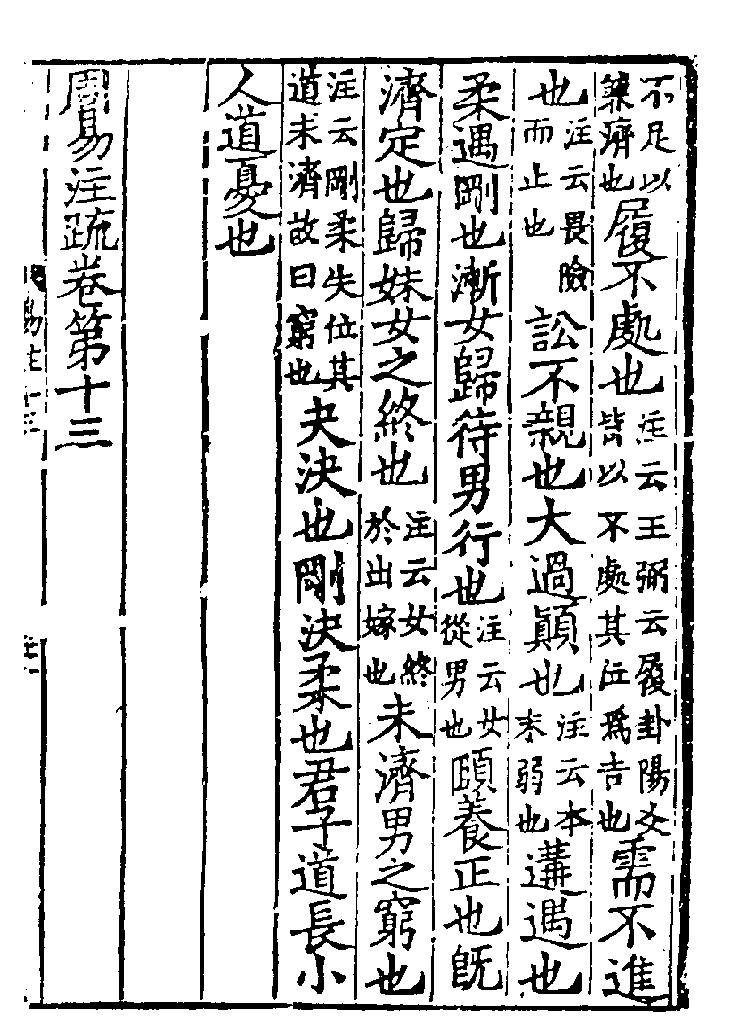 不足以兼濟也履不處也注云王弼云履卦陽爻皆以不處其位爲吉也需不進
也注云畏險而止也訟不親也大過顛也注云本末弱也遘遇也
柔遇剛也漸女歸待男行也注云女從男也頤養正也旣
濟定也歸妹女之終也注云女終於出嫁也未濟男之窮也
注云剛柔失位其道未濟故曰窮也夬決也剛決柔也君子道長小
人道憂也
周易注疏卷第十三